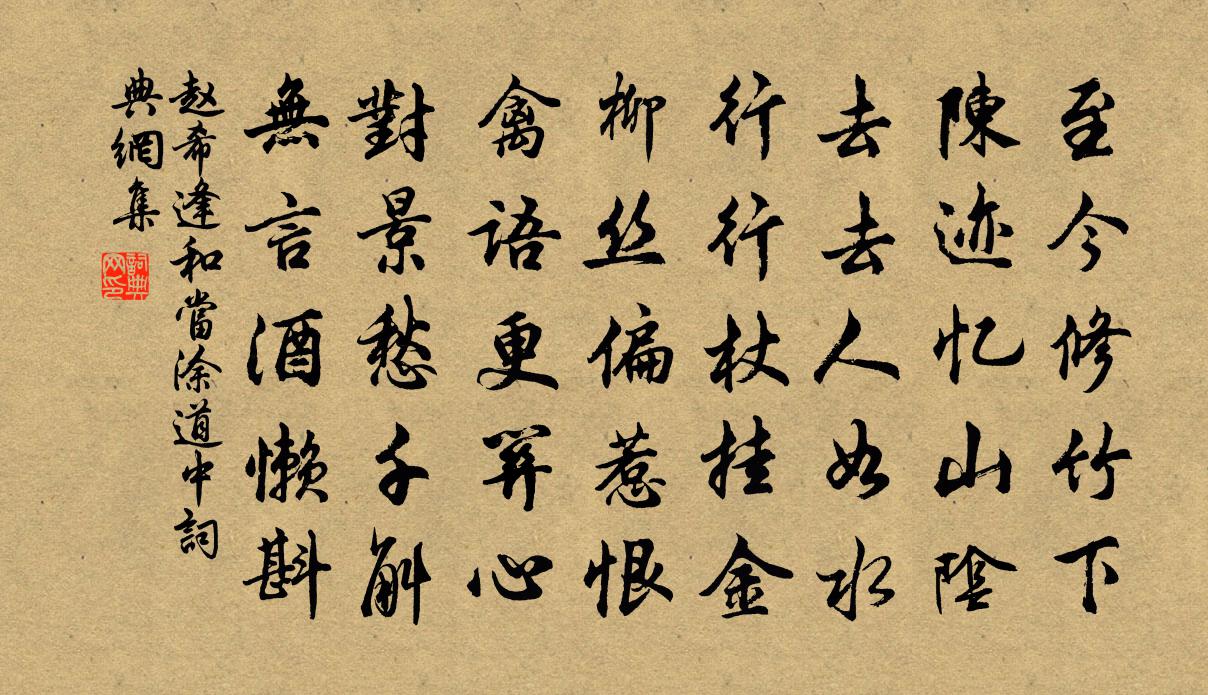 至今修竹下
陳迹忆山陰
去去人如水
行行杖挂金
柳丝偏惹恨
禽語更關心
對景愁千斛
無言酒懒斟
赵希逢和當涂道中詞
典網集
詞典网印